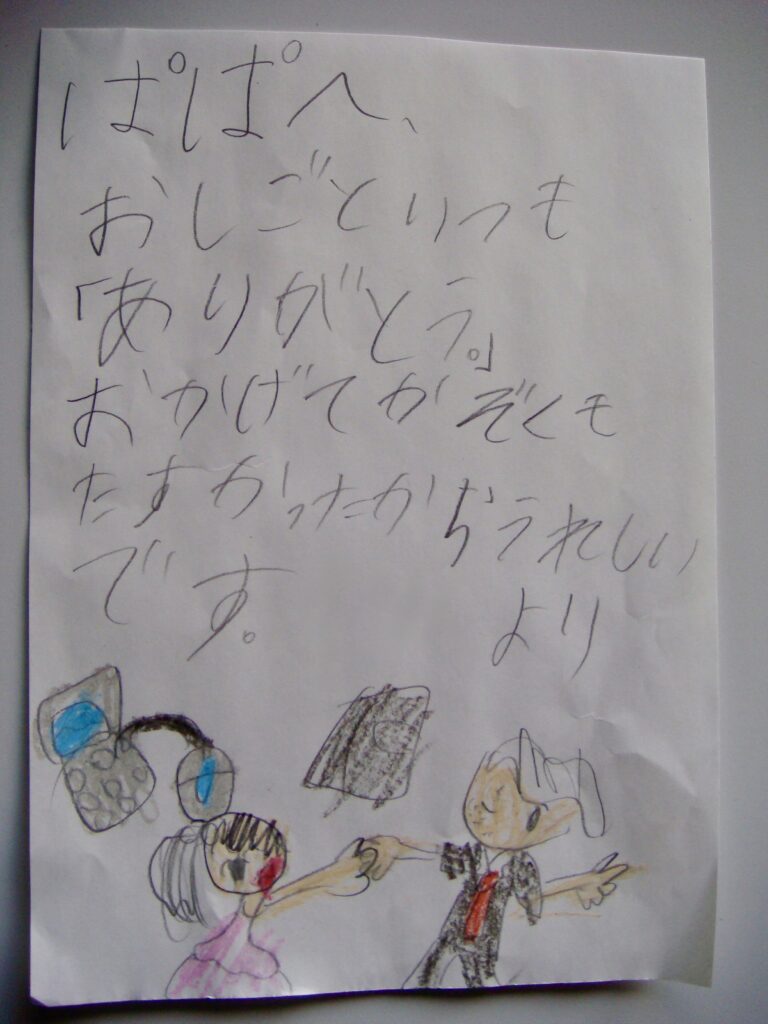 ぱぱへ、
おしごといつも
「ありがとう。」
おかげてかぞくも
たすかったからうれしい
です。
より